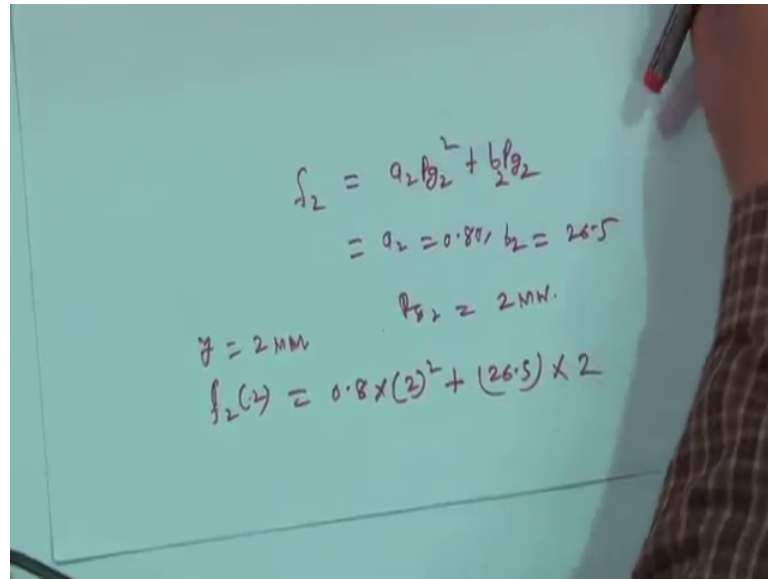 f₂ = a₂Pg₂² + b₂Pg₂
= a₂ = 0.80, b₂ = 26.5
Pg₂ = 2 MW.
y = 2 MW
f₂(2) = 0.8 × (2)² + (26.5) × 2